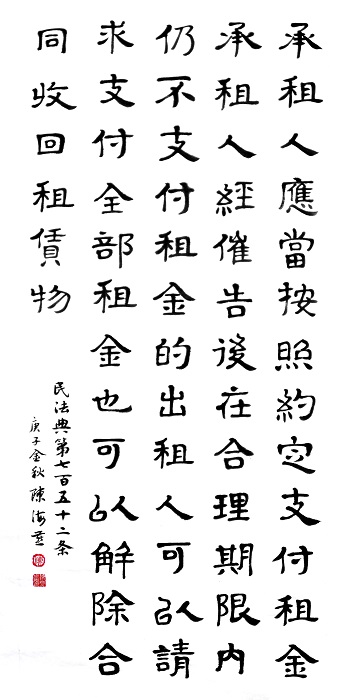 承租人應當按照約定支付租金
承租人經催告後在合理期限內
仍不支付租金的出租人可以請
求支付全部租金也可以解除合
同收回租賃物
民法典第七百五十二条
庚子金秋陳海